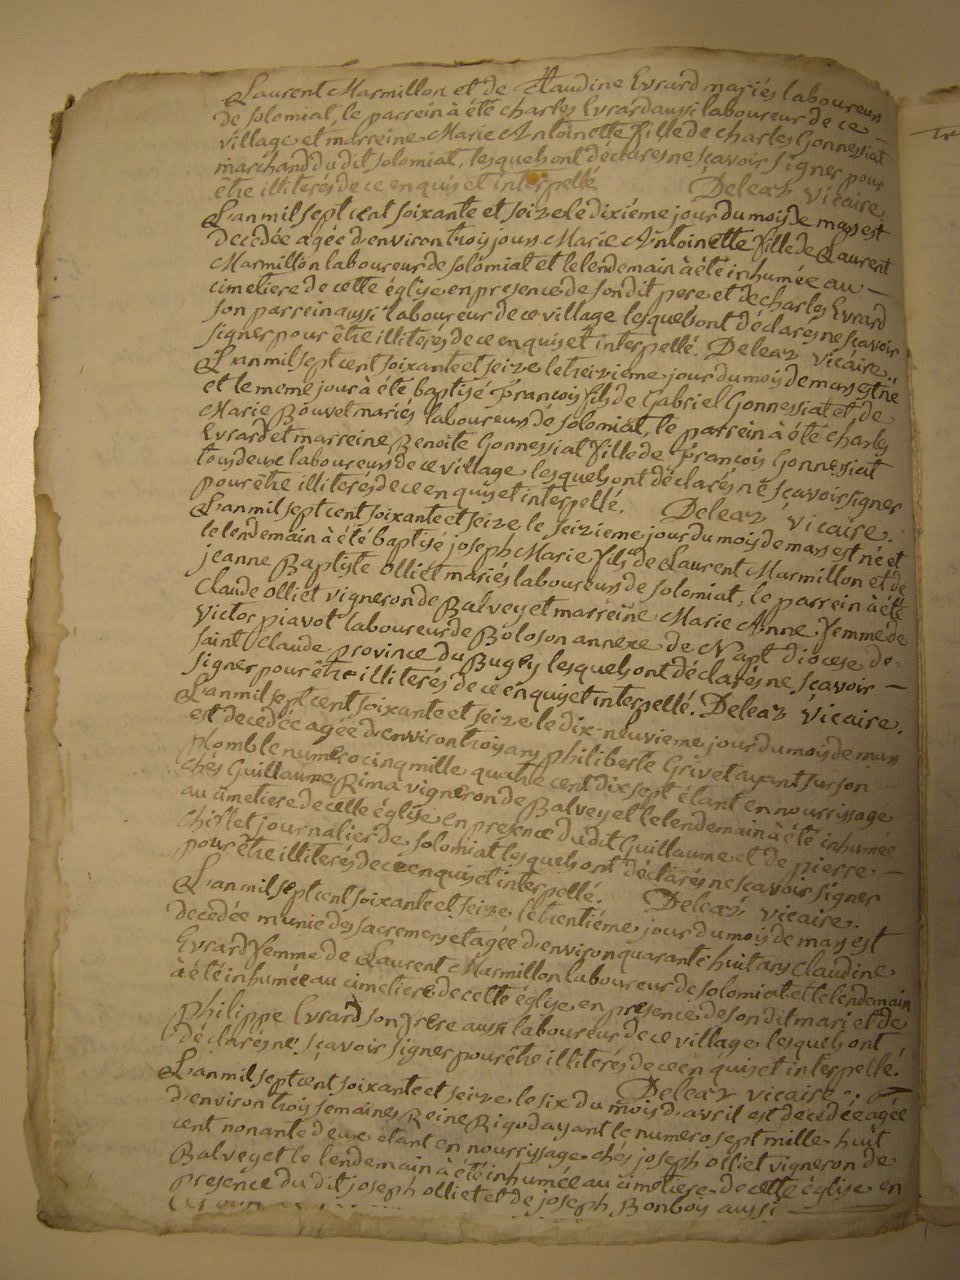 Laurent Marmillon et de Claudine Evrard mariés laboureurs
de solomiat, le parrein à été charles Evrard aussi laboureur de ce
village et marreine Marie Antoinette fille de charles Gonnessiat
marchand du dit solomiat, lesquels ont déclarés ne scavoir signer pour
être illiterés de ce enquis et interpellé. Deleaz vicaire
L'an mil sept cent soixante et seize le dixiéme jour du mois de mars est
decedée agée d'environ trois jours Marie Antoinette fille de Laurent
Marmillon laboureur de solomiat et le lendemain à été inhumée au
cimetiere de cette église en presence de son dit pere et de charles Evrard
son parrein aussi laboureur de ce village lesquels ont déclarés ne scavoir
signer pour être illiterés de ce enquis et interpellé. Deleaz vicaire.
L'an mil sept cent soixante et seize le treizième jour du mois de mars est né
et le meme jour à été baptisé françois fils de Gabriel Gonnessiat et de
Marie Bouvet mariés laboureurs de solomiat, le parrein à été charles
Evrard et marreine Benoite Gonnessiat fille de françois Gonnessiat
tous deux laboureurs de ce village lesquels ont déclarés ne scavoir signer
pour être illiterés de ce enquis et interpellé. Deleaz vicaire.
L'an mil sept cent soixante et seize le seizieme jour du mois de mars est né et
le lendemain à été baptisé joseph Marie fils de Laurent Marmillon et de
jeanne Baptiste olliet mariés laboureurs de solomiat, le parrein à été
Claude olliet vigneron de Balvey et marreine Marie Anne femme de
victor piavot laboureur de Boloson annexe de Napt diocese de
saint Claude province du Bugey lesquels ont déclarés ne scavoir
signer pour être illiterés de ce enquis et interpellé. Deleaz vicaire.
L'an mil sept cent soixante et seize le dix-neuvieme jour du mois de mars
est decedée agée d'environ trois ans philiberte Grivet ayant sur son
plomb le numero cinq mille quatre cent dix sept étant en nourrissage
chés Guillaume Rima vigneron de Balvey et le lendemain à été inhumée
au cimetiere de cette église en presence du dit Guillaume et de pierre
journalier de solomiat lesquels ont déclarés ne scavoir signer
pour être illiterés de ce enquis et interpellé. Deleaz vicaire.
L'an mil sept cent soixante et seize le trentiéme jour du mois de mars est
decedée munie des sacremens et agée d'environ quarante huit ans Claudine
Evrard femme de Laurent Marmillon laboureur de solomiat et le lendemain
à été inhumée au cimetiere de cette église en presence de son dit mari et de
philippe Evrard son frere aussi laboureur de ce village lesquels ont
déclarés ne scavoir signer pour être illiterés de ce enquis et interpellé.
Deleaz vicaire.
L'an mil sept cent soixante et seize le six du mois d'avril est decedée agée
d'environ trois semaines Reine Rigod ayant le numero sept mille huit
cent nonante deux etant en nourrissage chés joseph olliet vigneron de
Balvey et le lendemain à été inhumée au cimetiere de cette église en
presence du dit joseph olliet et de joseph Bonboy aussi